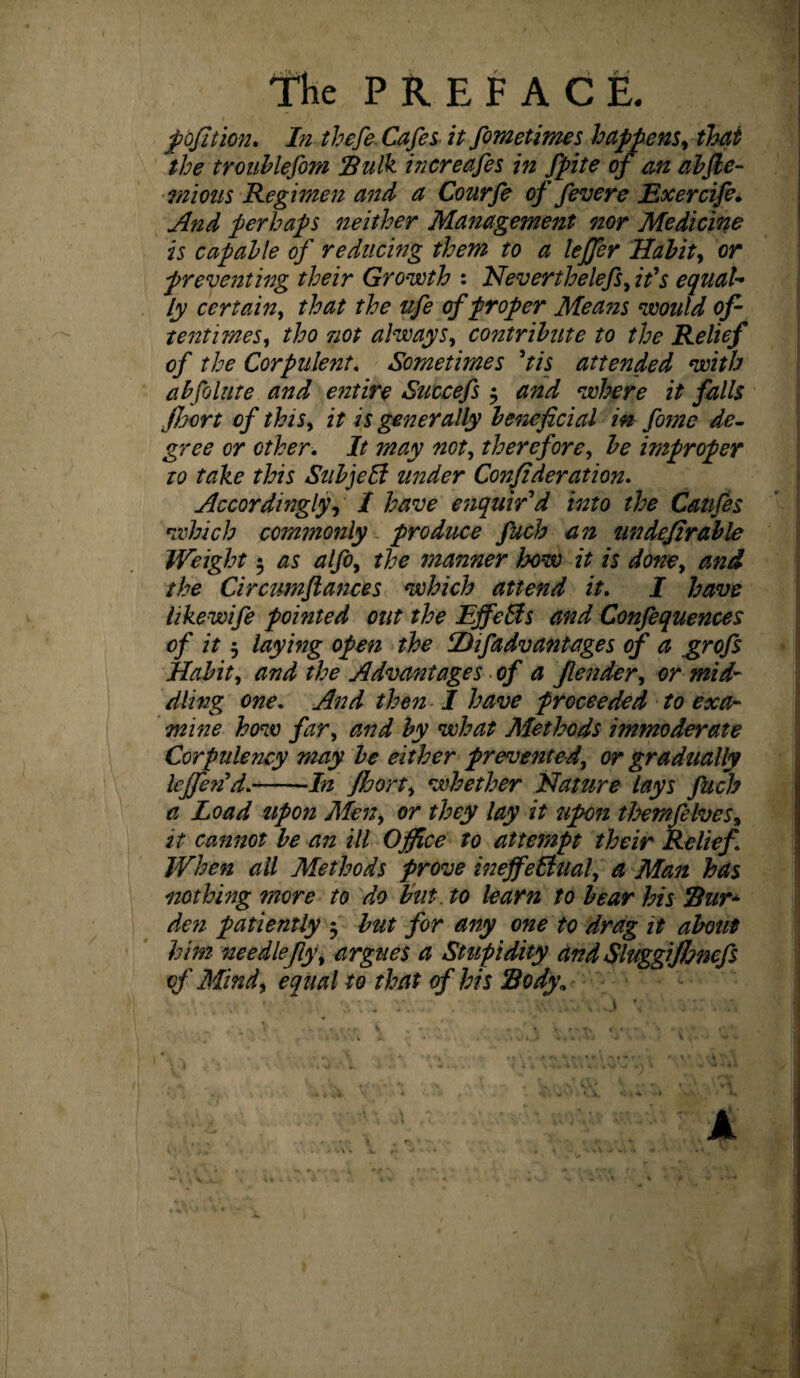 The PREFACE.
poſition. In theſe Caſes it ſometimes happens, that
the troubleſom Bulk increaſes in ſpite of an abſte-
mious Regimen and a Courſe of ſevere Exerciſe.
And perhaps neither Management nor Medicine
is capable of reducing them to a leſſer Habit, or
preventing their Growth : Nevertheleſs, it's equal-
ly certain, that the uſe of proper Means would of-
tentimes, tho not always, contribute to the Relief
of the Corpulent. Sometimes 'tis attended with
abſolute and entire Succeſs ; and where it falls
ſhort of this, it is generally beneficial in ſome de-
gree or other. It may not, therefore, be improper
to take this Subject under Conſideration.
Accordingly, I have enquir'd into the Cauſes
which commonly produce ſuch an undeſirable
Weight ; as alſo, the manner how it is done, and
the Circumſtances which attend it. I have
likewiſe pointed out the Effects and Conſequences
of it ; laying open the Diſadvantages of a groſs
Habit, and the Advantages of a ſlender, or mid-
dling one. And then I have proceeded to exa-
mine how far, and by what Methods immoderate
Corpulency may be either prevented, or gradually
leſſen'd.——In ſhort, whether Nature lays ſuch
a Load upon Men, or they lay it upon themſelves,
it cannot be an ill Office to attempt their Relief.
When all Methods prove ineffectual, a Man has
nothing more to do but to learn to bear his Bur-
den patiently ; but for any one to drag it about
him needleſly, argues a Stupidity and Sluggiſhneſs
of Mind, equal to that of his Body.
A